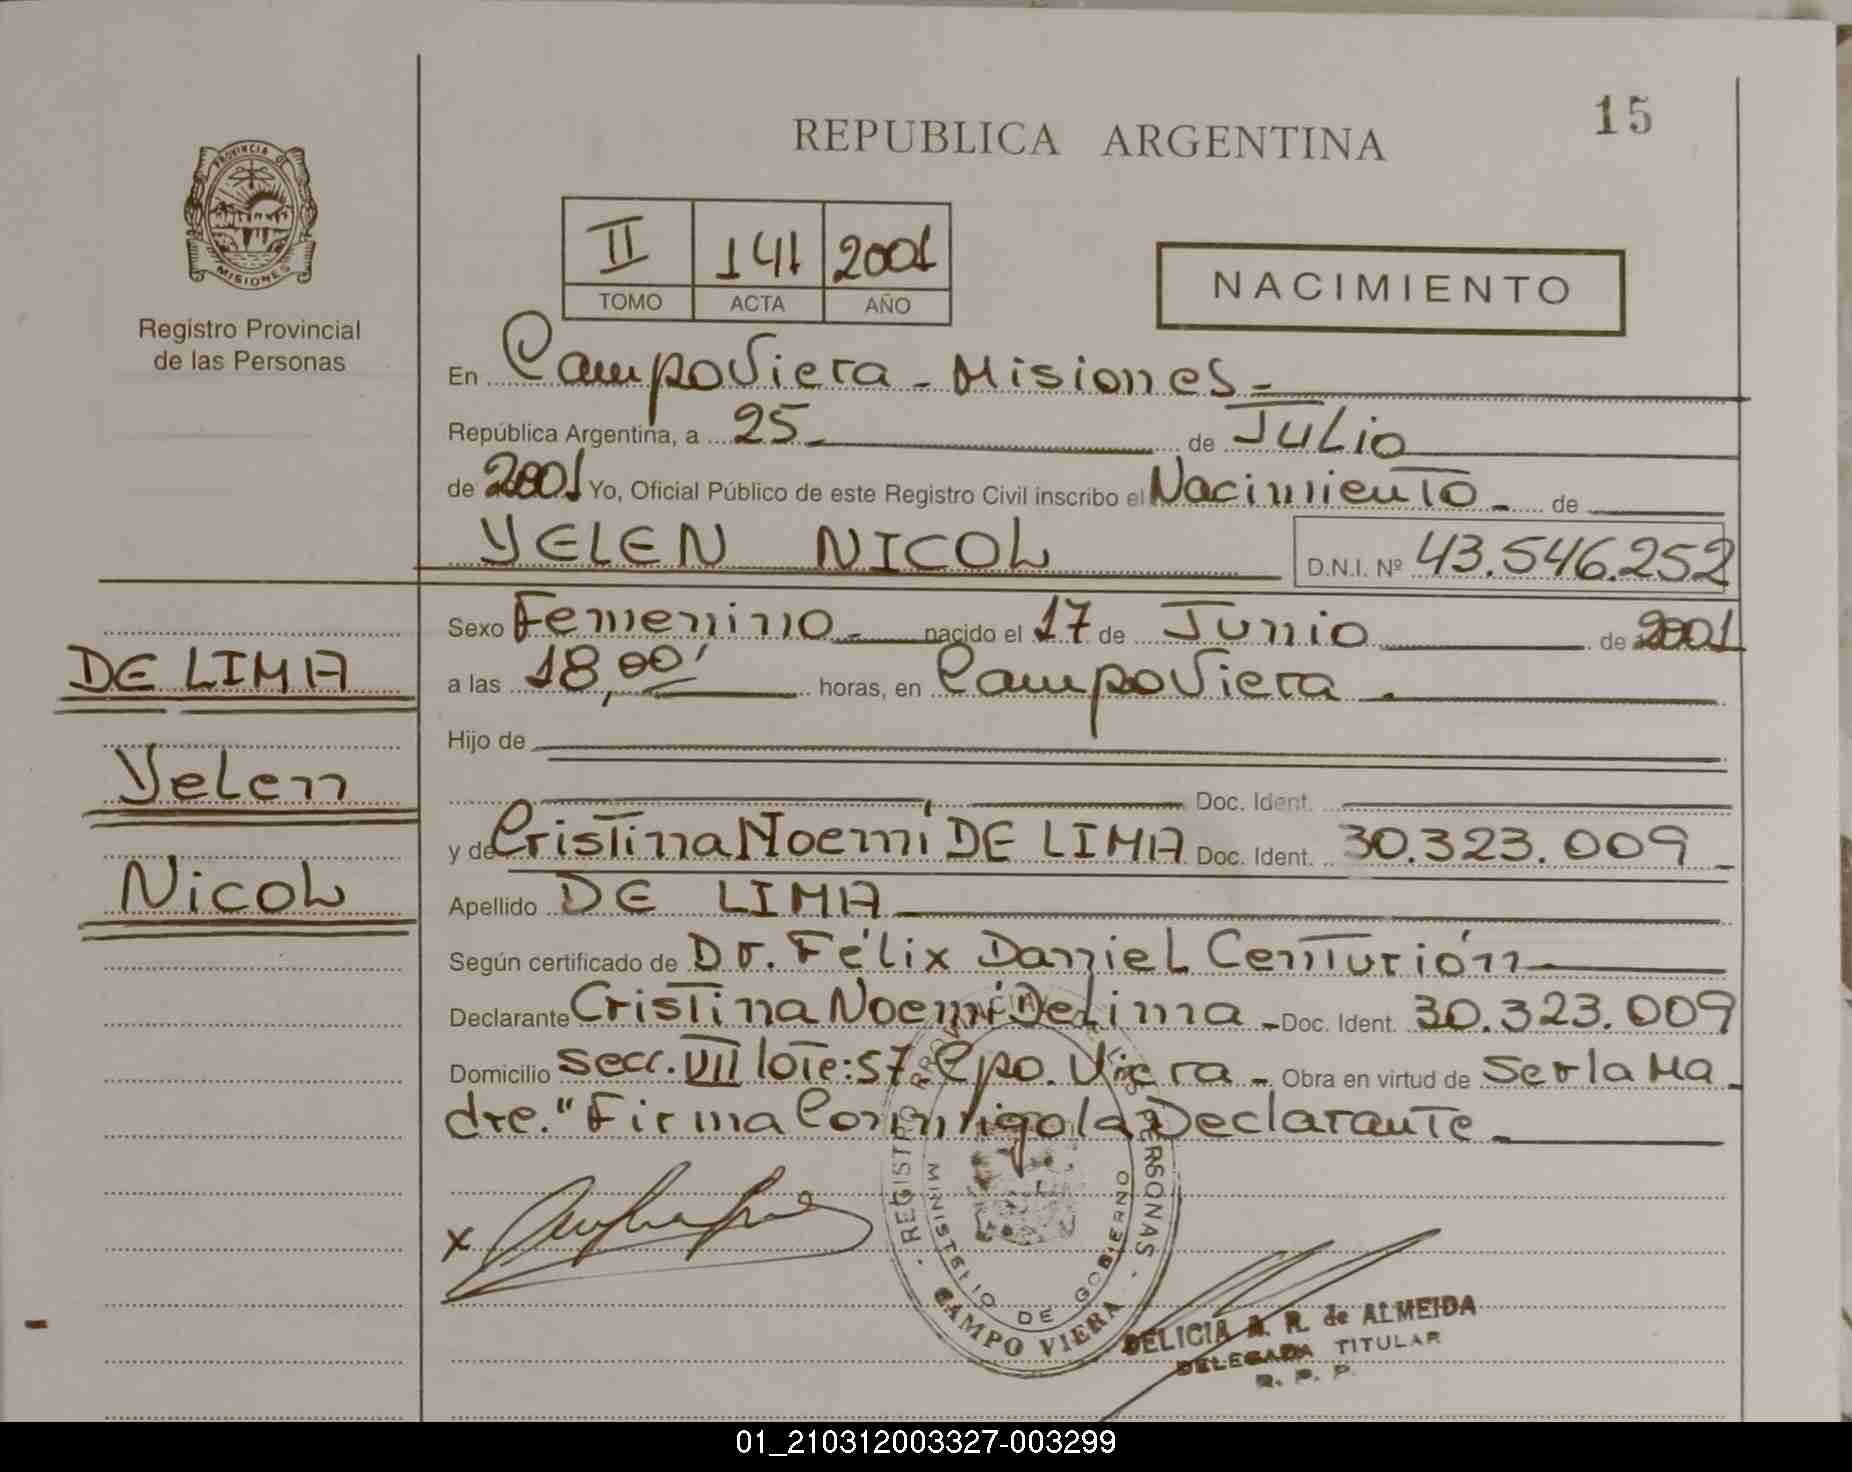 15
REPUBLICA ARGENTINA
PROVINCIA DE
MISIONES
Registro Provincial
de las Personas
II 141 2001
TOMO ACTA AÑO
NACIMIENTO
En Campo Viera - Misiones -
República Argentina, a 25 - de Julio
de 2001 Yo, Oficial Público de este Registro Civil inscribo el Nacimiento - de
YELEN NICOL D.N.I. Nº 43.546.252
Sexo Femenino - nacido el 17 de Junio de 2001
DE LIMA
a las 18,00' horas, en Campo Viera .
Hijo de
Yelen
Doc. Ident.
y de Cristina Noemí DE LIMA Doc. Ident. 30.323.009 -
Nicol
Apellido DE LIMA
Según certificado de Dr. Félix Daniel Centurión
Declarante Cristina Noemí De Lima - Doc. Ident. 30.323.009
Domicilio secc. VII lote: 57 Cpo. Viera - Obra en virtud de Ser la Ma
dre." Firma Conmigo la Declarante -
x
REGISTRO PERSONAS
MINISTERIO DE GOBIERNO
CAMPO VIERA
DELICIA A. R. de ALMEIDA
DELEGADA TITULAR
R. P. P.
01_210312003327-003299